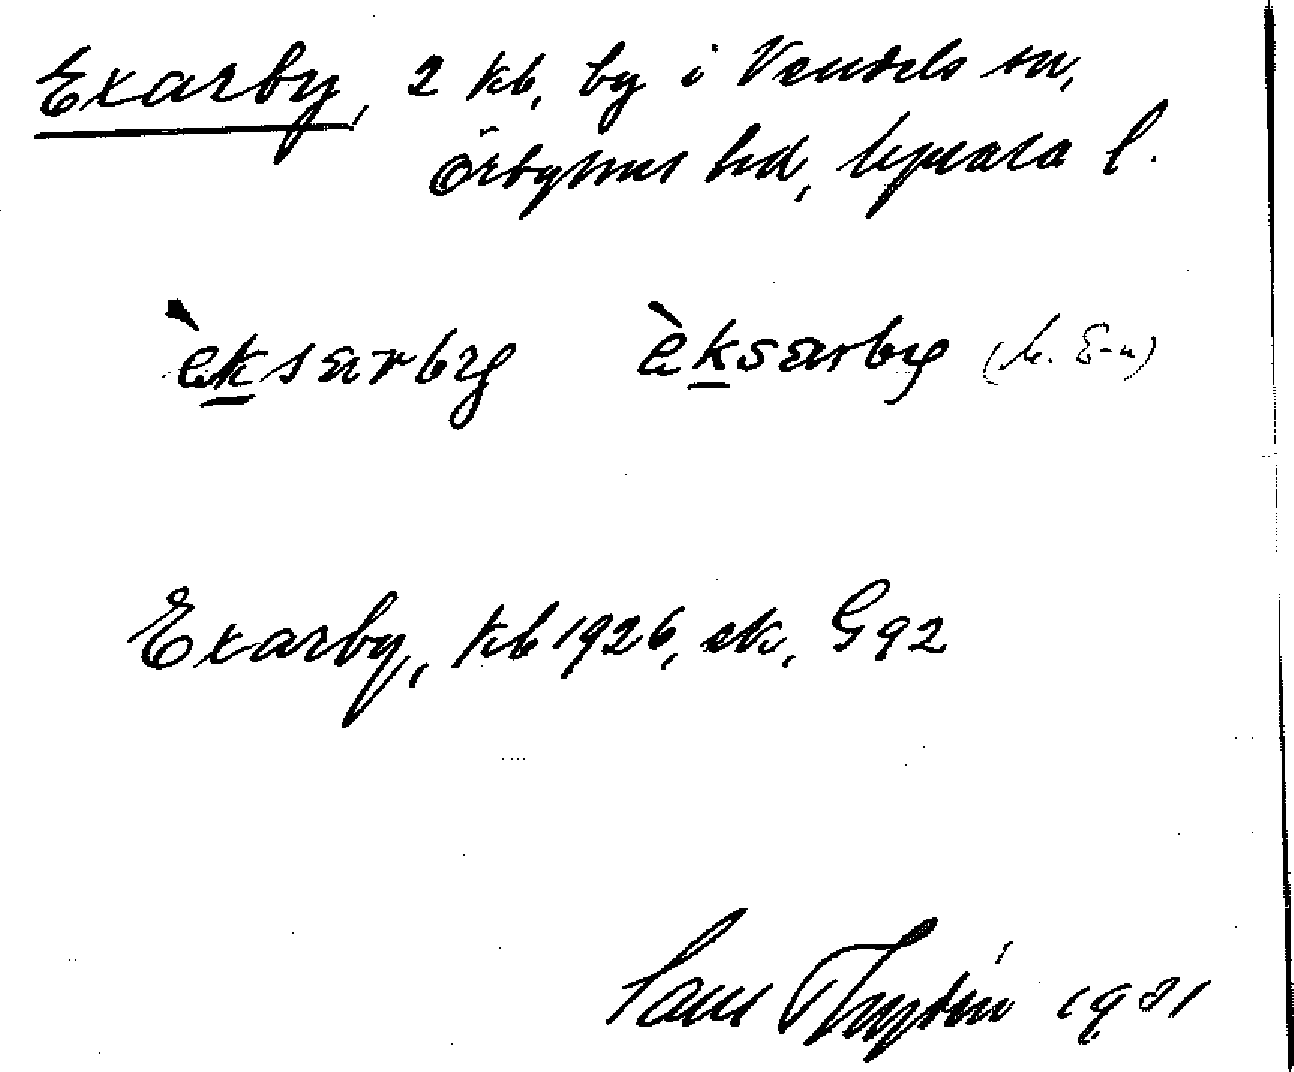 Exarby, 2 kb, by i Vendels sn,
Örbyhus hd, Uppsala l.
èksarby èksarby
Exarby, kb 1926, ek, G92
1931